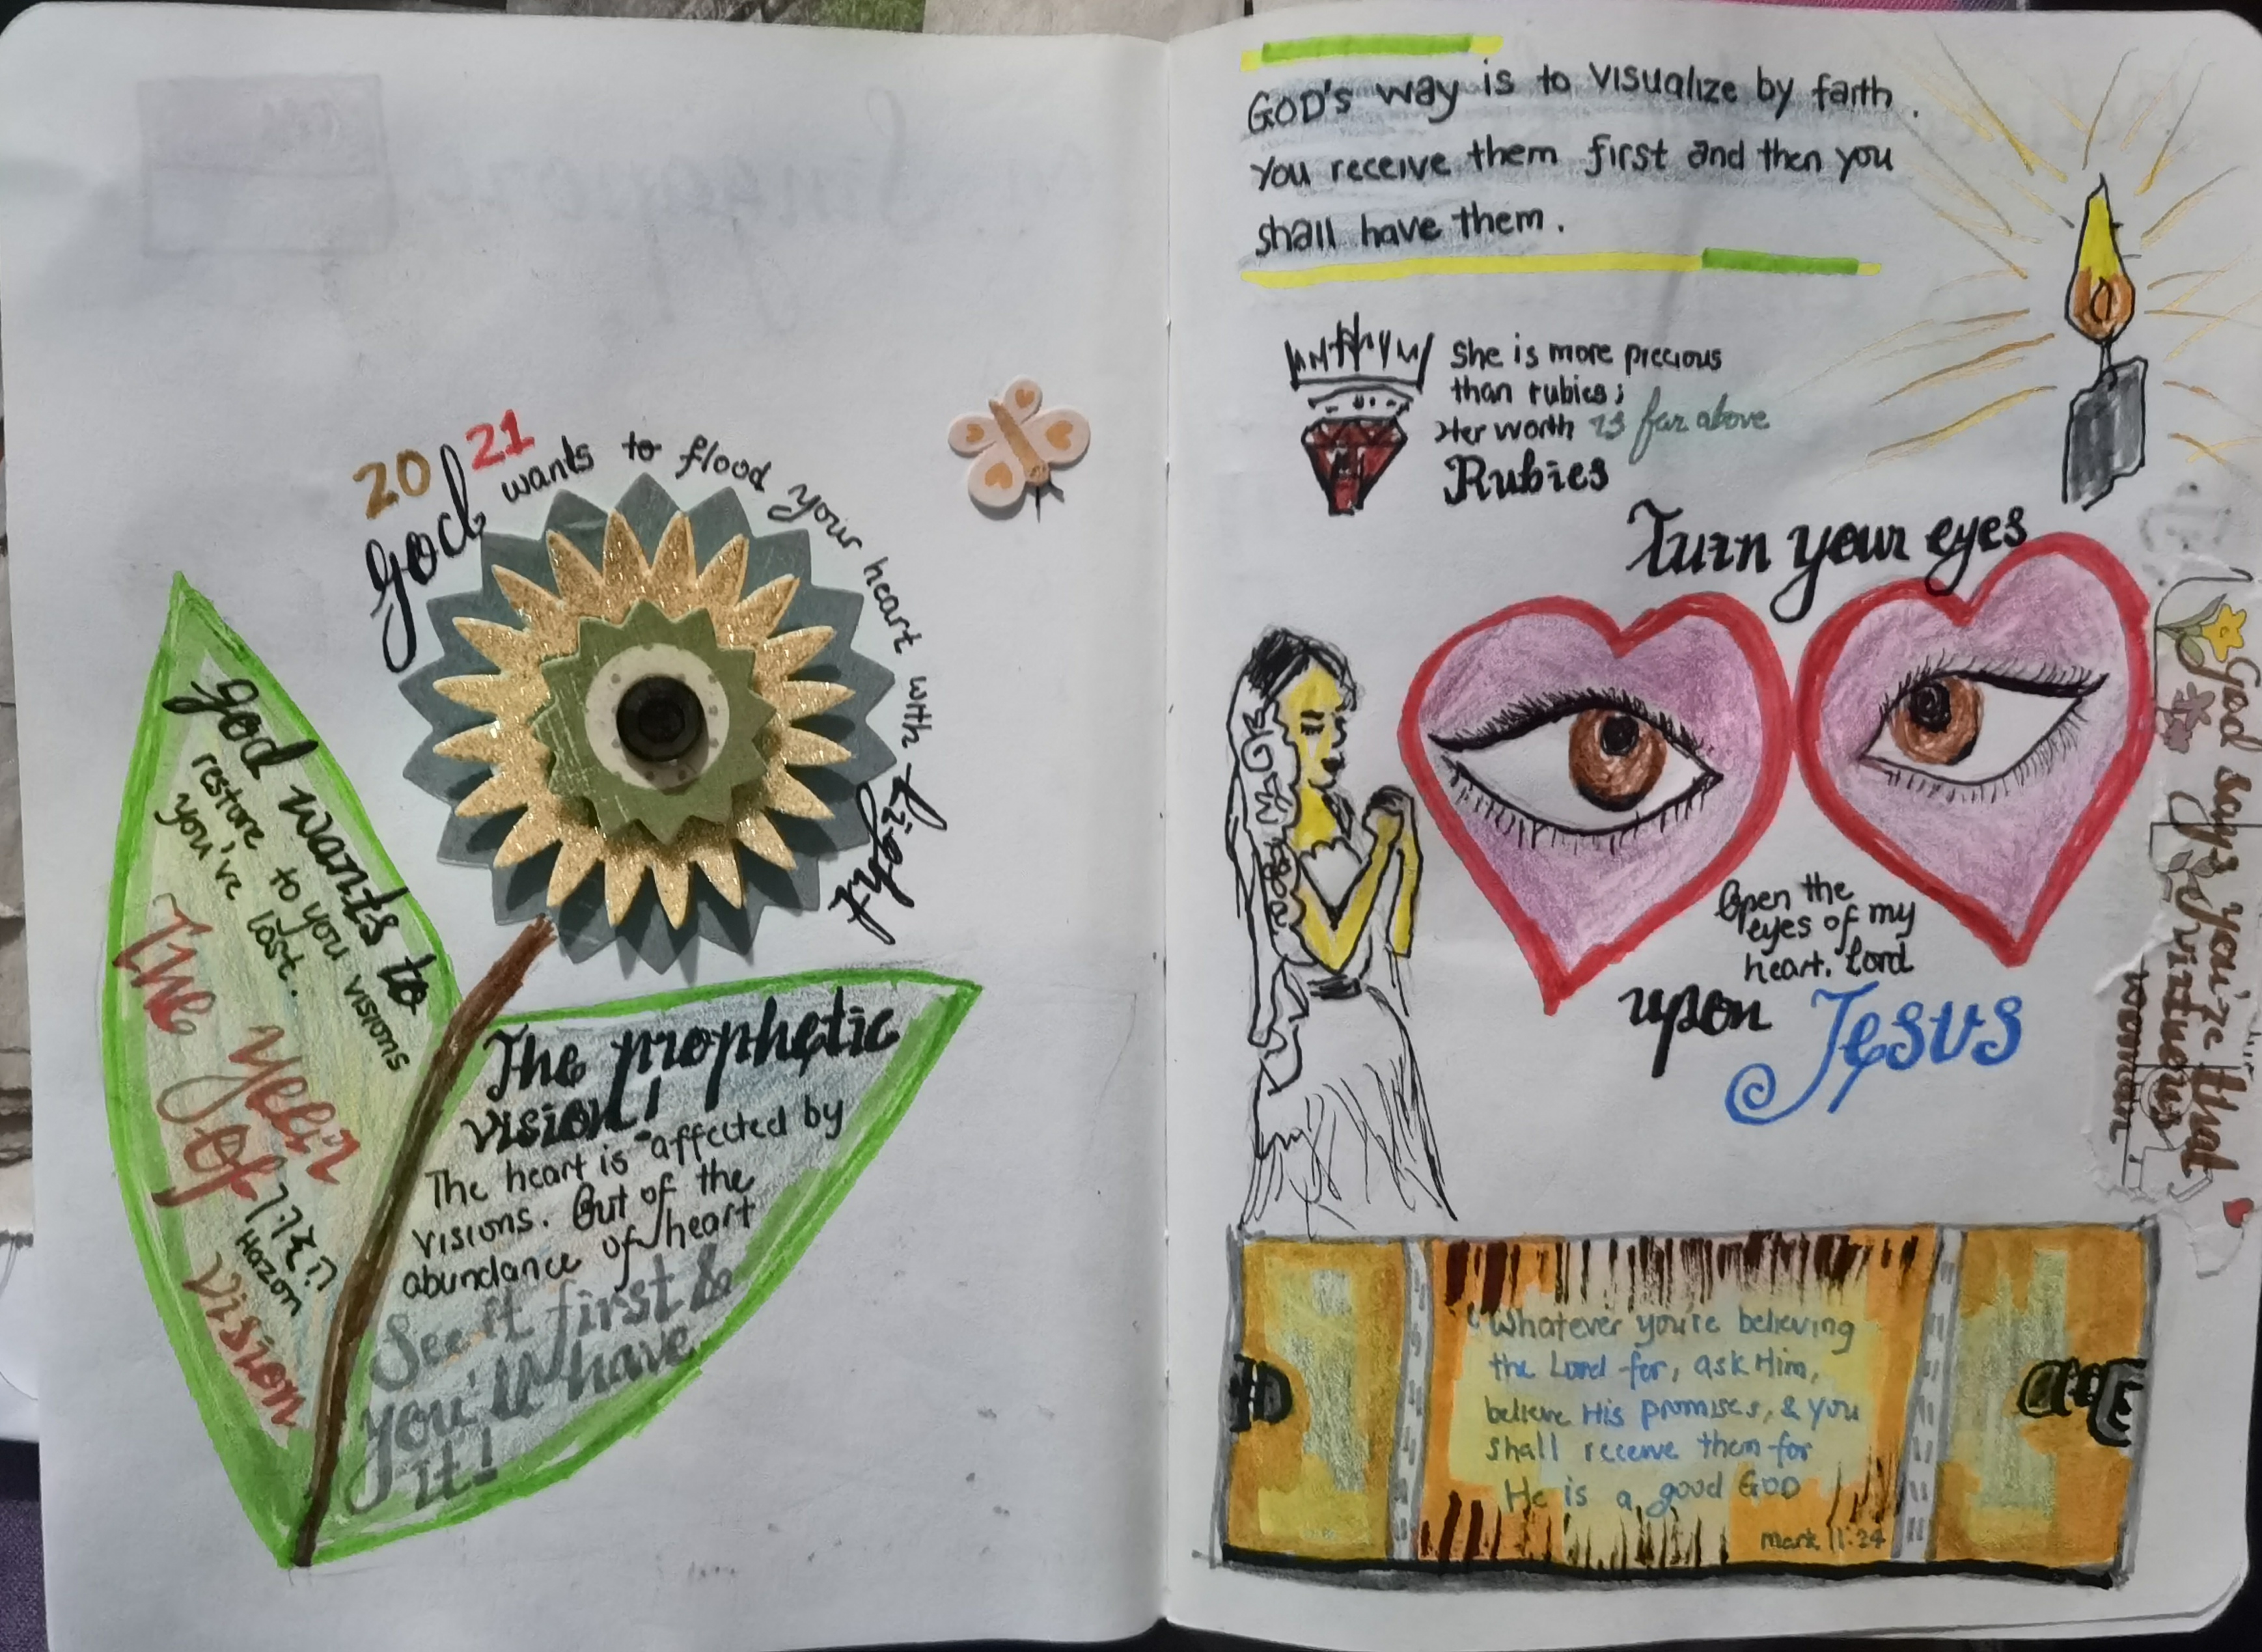 2021
God wants to flood your heart with
Light
God wants to
restore to you visions
you've lost.
The Year
Of
Hazon
Vision
The prophetic
vision!
The heart is affected by
visions. Out of the
abundance of heart
See it first &
you'll have
it!
GOD's way is to visualize by faith.
You receive them first and then you
shall have them.
She is more precious
than rubies;
Her worth is far above
Rubies
Turn your eyes
Open the
eyes of my
heart. Lord
upon Jesus
God says you're that
virtuous
woman
"Whatever you're believing
the Lord for, ask Him,
believe His promises, & you
shall receive them for
He is a good GOD
Mark 11:24